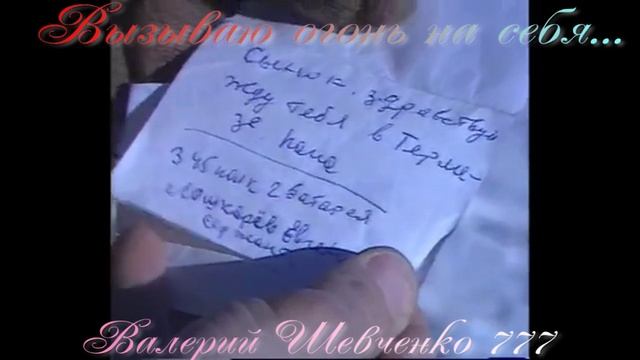 Вызываю огонь на себя...
Сынок, здравствуй
жду тебя в Терме-
зе папа
345 полк 2 батарея
Лошкарёв
Валерий Шевченко 777